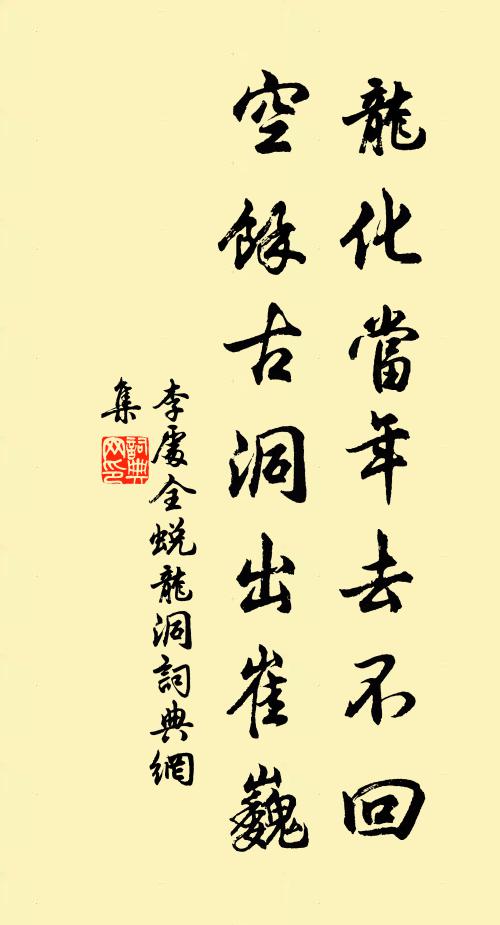 龍化當年去不回
空餘古洞出崔巍
李處全蛻龍洞詞典網
集
詞典網印